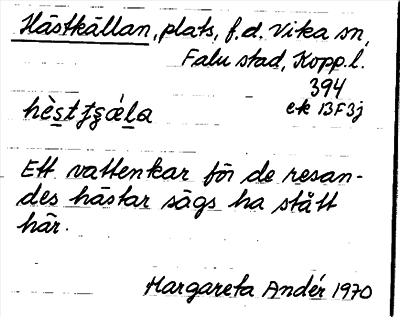 Hästkällan, plats, f.d. Vika sn,
Falu stad, Kopp.l.
394
ek 13F3j
Ett vattenkar för de resan-
des hästar sägs ha stått
här.
Margareta Andér 1970